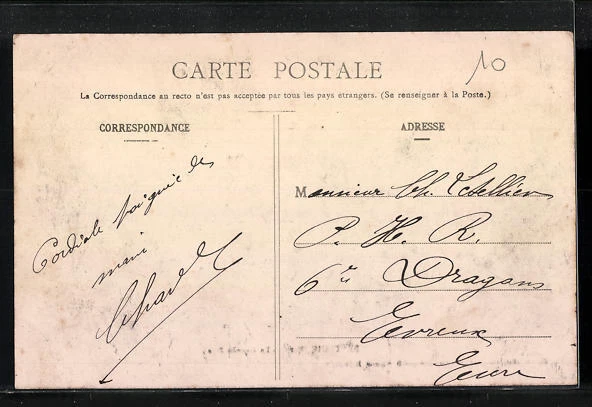 10
CARTE POSTALE
La Correspondance au recto n'est pas acceptée par tous les pays étrangers. (Se renseigner à la Poste.)
CORRESPONDANCE
ADRESSE
Cordiale poignée de
main
Monsieur Ch.
P. H. R.
6e Dragons
Evreux
Eure